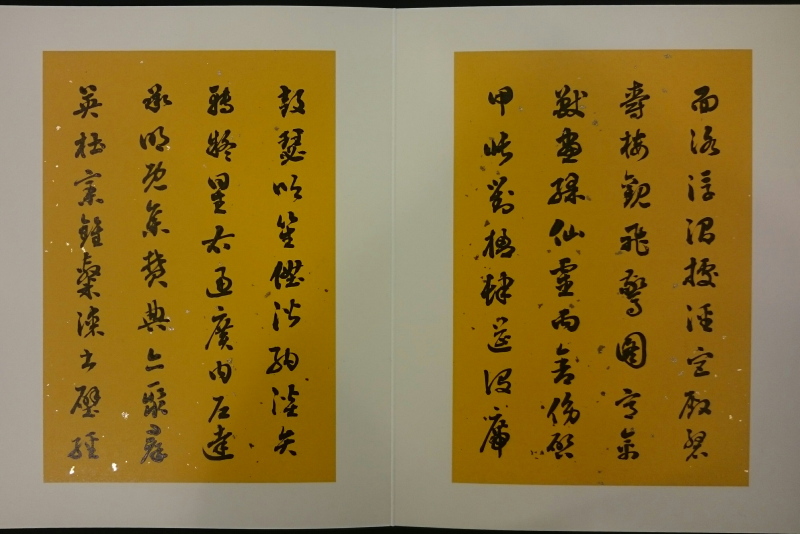 面洛浮渭據涇宮殿盤
鬱樓觀飛驚圖寫禽
獸畫綵仙靈丙舍傍啟
甲帳對楹肆筵設席
鼓瑟吹笙陞階納陛弁
轉疑星右通廣內左達
承明既集墳典亦聚群
英杜稾鍾隸漆書壁經